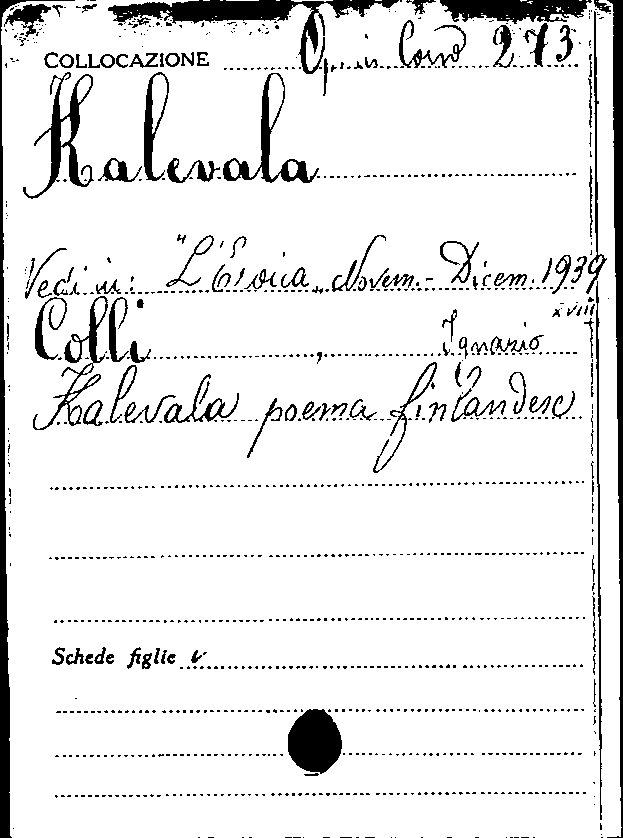 COLLOCAZIONE Op. in Corso 273
Kalevala
Vedi in: "L'Eroica„ Novem.- Dicem. 1939
XVIII
Colli, Ignazio
Kalevala poema finlandese
Schede figlie v